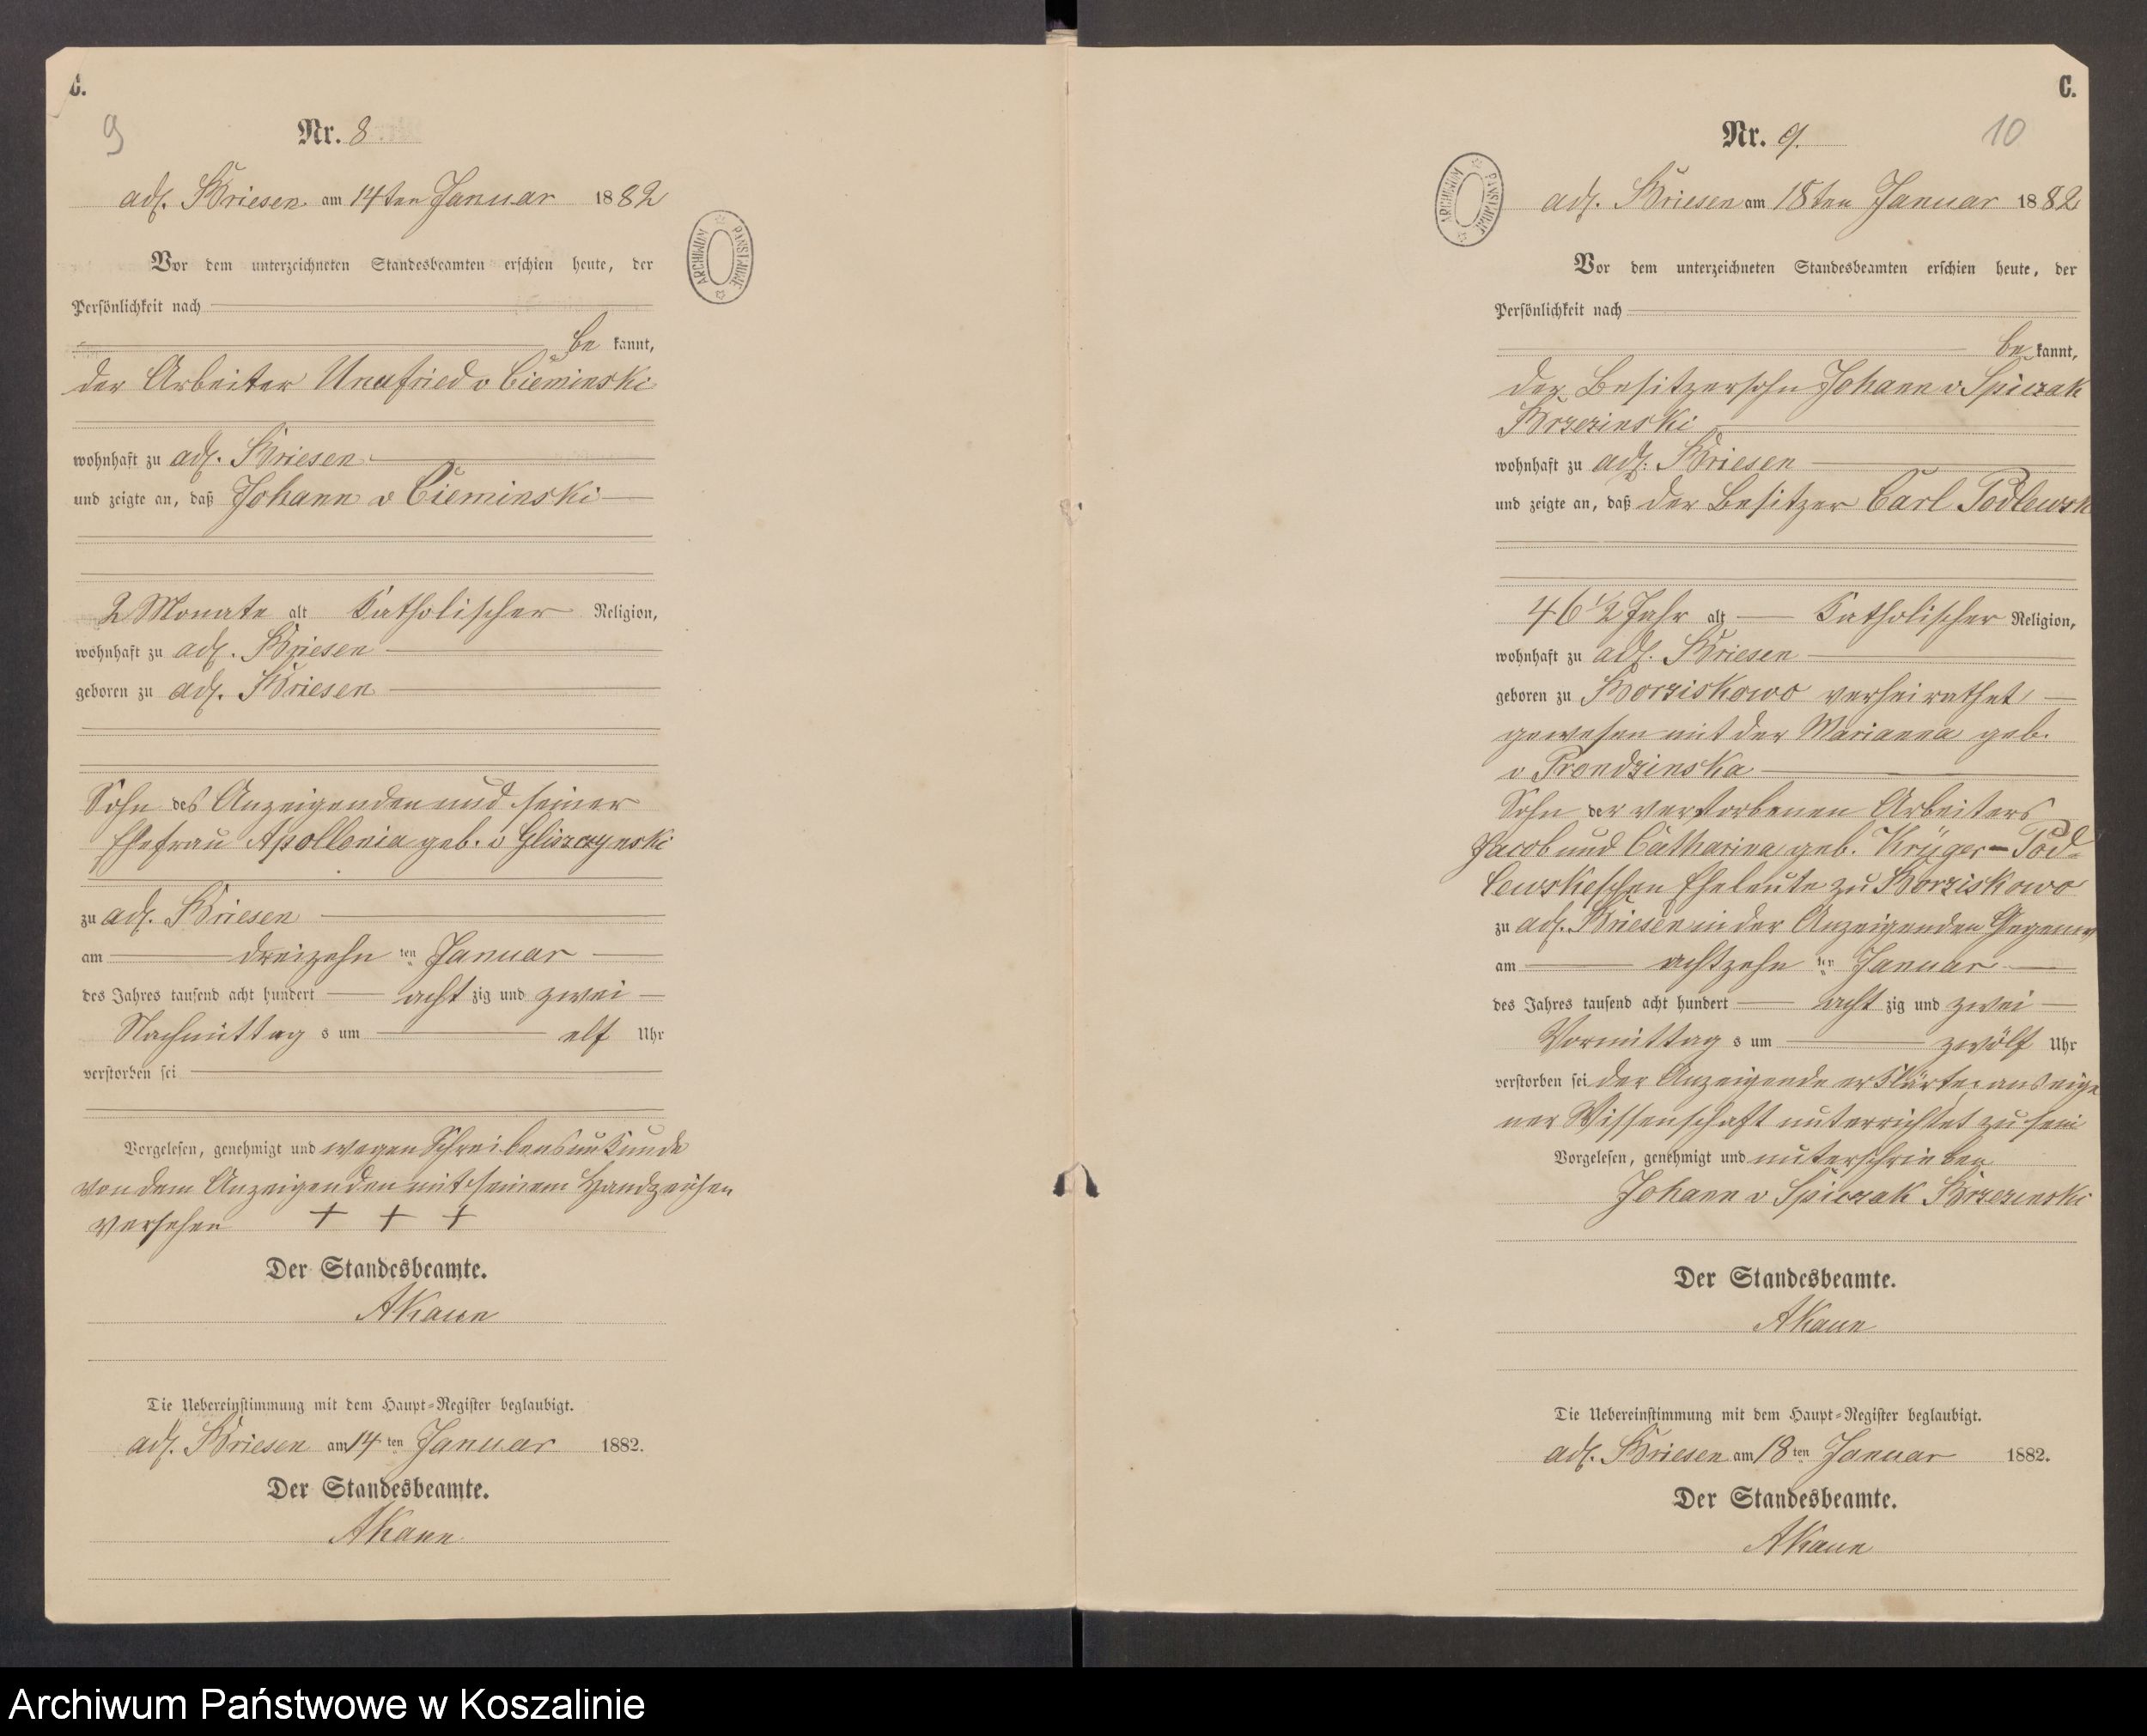 C.
9
Nr. 8
adl. Briesen am 14ten Januar 1882
Vor dem unterzeichneten Standesbeamten erschien heute, der
Persönlichkeit nach
be kannt,
der Arbeiter v Cieminski
wohnhaft zu adl. Briesen
und zeigte an, daß Johann v Cieminski
2 Monate alt Katholischer Religion,
wohnhaft zu adl. Briesen
geboren zu adl. Briesen
Sohn des Anzeigenden und seiner
Ehefrau Apollonia geb. v Gliszczynski
zu adl. Briesen
am dreizehn ten Januar
des Jahres tausend acht hundert acht zig und zwei
Nachmittag s um elf Uhr
verstorben sei
Vorgelesen, genehmigt und wegen Schreibensunkunde
von dem Anzeigenden mit seinem Handzeichen
versehen + + +
Der Standesbeamte.
AKaun
Die Uebereinstimmung mit dem Haupt-Register beglaubigt.
adl. Briesen am 14 ten Januar 1882.
Der Standesbeamte.
AKaun
ARCHIWUM PAŃSTWOWE
C.
10
Nr. 9.
adl. Briesen am 18ten Januar 1882
Vor dem unterzeichneten Standesbeamten erschien heute, der
Persönlichkeit nach
be kannt,
der Besitzersohn Johann v Spiczak
Brzezinski
wohnhaft zu adl. Briesen
und zeigte an, daß der Besitzer Carl Podlewsk
46 1/2 Jahr alt Katholischer Religion,
wohnhaft zu adl. Briesen
geboren zu Borziskowo verheirathet
gewesen mit der Marianna geb.
v Prondzinska
Sohn der verstorbenen Arbeiters
Jacob und Catharina geb. Krüger - Pod-
lewskeschen Eheleute zu Borziskowo
zu adl. Briesen in der Anzeigenden Gegenw
am achtzehn ten Januar
des Jahres tausend acht hundert acht zig und zwei
Vormittag s um zwölf Uhr
verstorben sei der Anzeigende erklärte: aus eige
ner Wissenschaft unterrichtet zu sein
Vorgelesen, genehmigt und unterschrieben
Johann v Spiczak Brzezinski
Der Standesbeamte.
AKaun
Die Uebereinstimmung mit dem Haupt-Register beglaubigt.
adl. Briesen am 18 ten Januar 1882.
Der Standesbeamte.
AKaun
ARCHIWUM PAŃSTWOWE
Archiwum Państwowe w Koszalinie